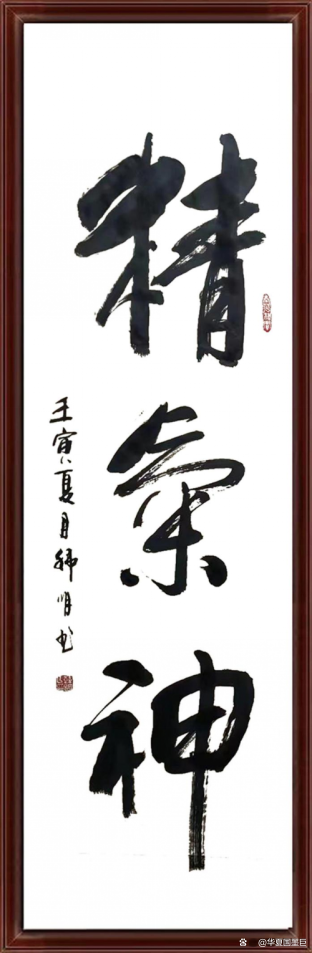 精
氣
神
壬寅夏月
明书
@华夏国墨巨